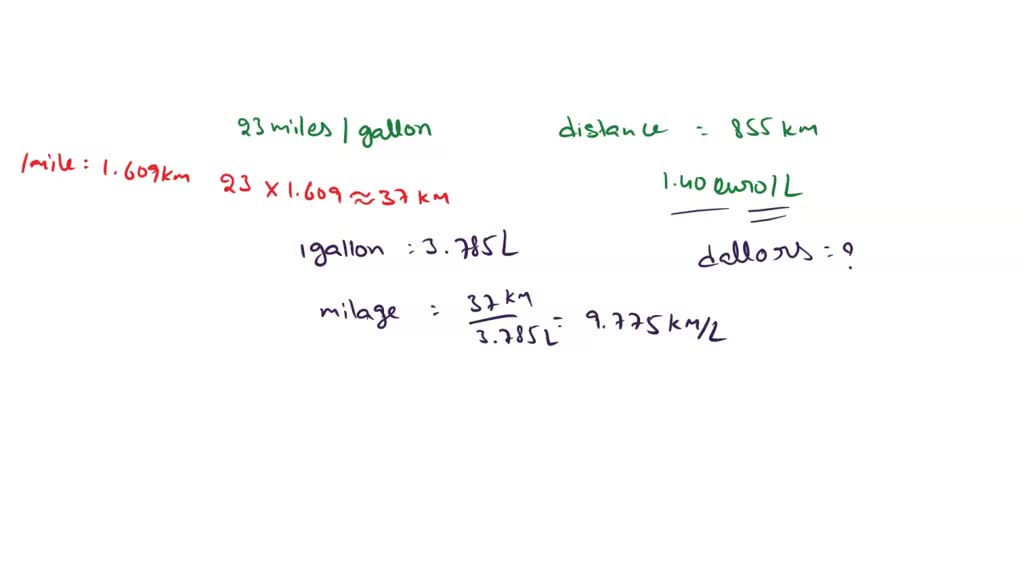 23 miles / gallon
distance = 855 km
1 mile : 1.609 km
23 × 1.609 ≈ 37 km
1.40 euro/L
1 gallon : 3.785L
dallors = ?
milage = 37 km / 3.785L = 9.775 km/L